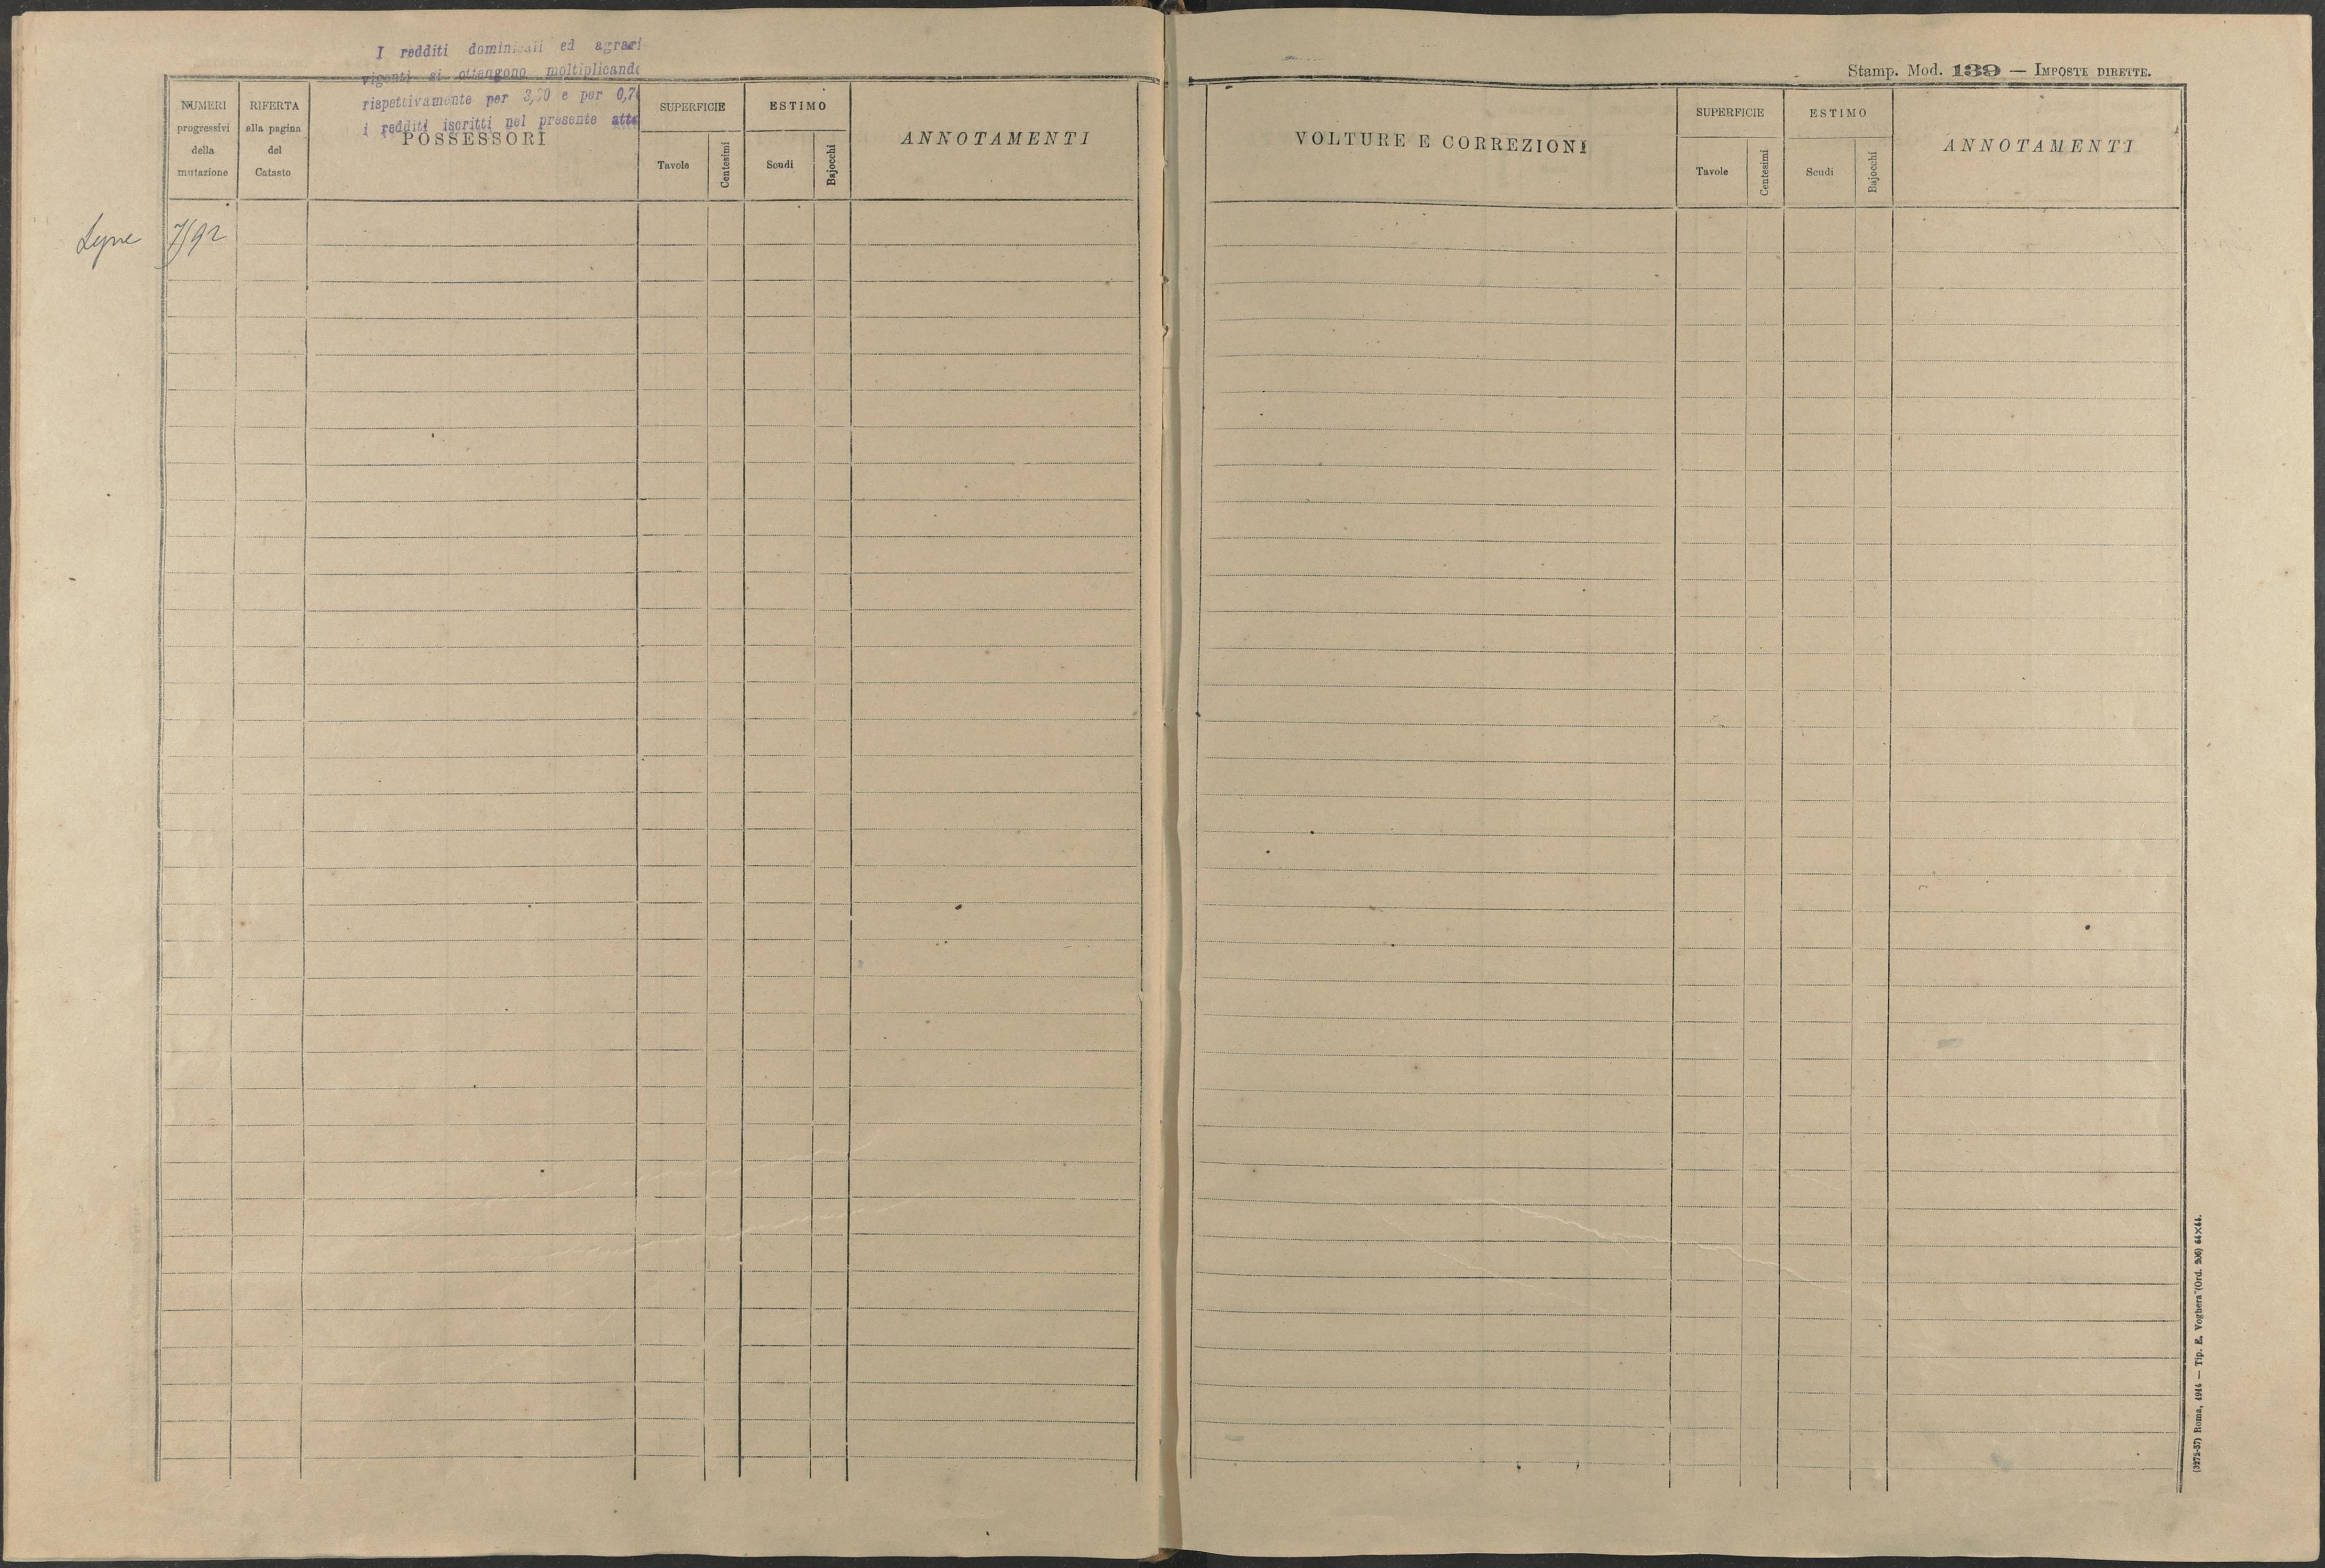 I redditi dominicali ed agrari
vigenti si ottengono moltiplicando
rispettivamente per 3,20 e per 0,7
i redditi iscritti nel presente atto
NUMERI
progressivi
della
mutazione
RIFERTA
alla pagina
del
Catasto
POSSESSORI
SUPERFICIE
Tavole
Centesimi
ESTIMO
Scudi
Bajocchi
ANNOTAMENTI
7/92
Stamp. Mod. 139 — IMPOSTE DIRETTE.
VOLTURE E CORREZIONI
SUPERFICIE
Tavole
Centesimi
ESTIMO
Scudi
Bajocchi
ANNOTAMENTI
(3272-57) Roma, 1914 — Tip. E. Voghera (Ord. 206) 64×44.